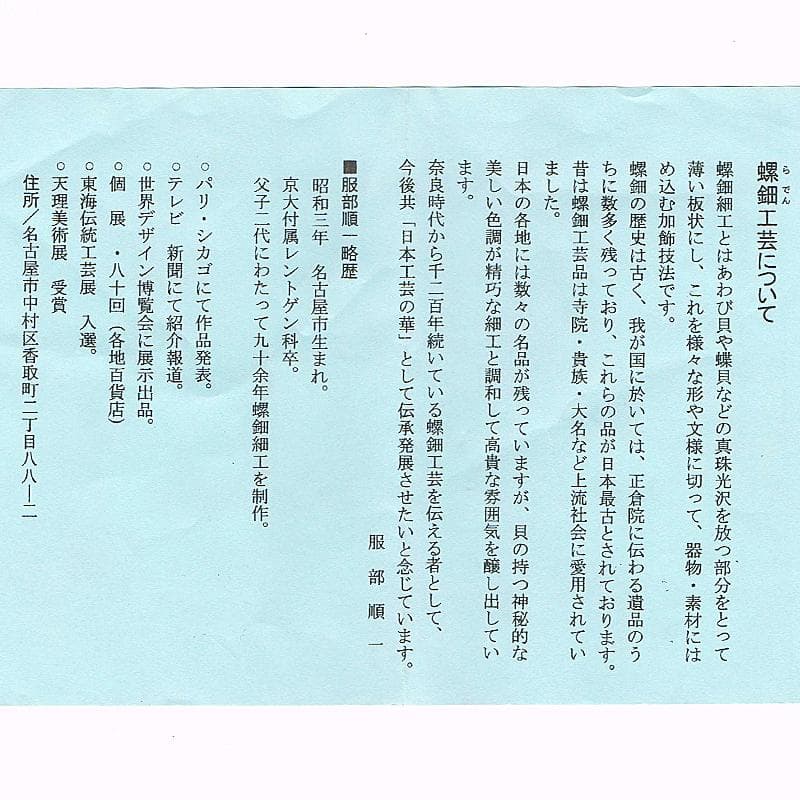 螺鈿工芸について
らでん
螺鈿細工とはあわび貝や蝶貝などの真珠光沢を放つ部分をとって
薄い板状にし、これを様々な形や文様に切って、器物・素材には
め込む加飾技法です。
螺鈿の歴史は古く、我が国に於いては、正倉院に伝わる遺品のう
ちに数多く残っており、これらの品が日本最古とされております。
昔は螺鈿工芸品は寺院・貴族・大名など上流社会に愛用されてい
ました。
日本の各地には数々の名品が残っていますが、貝の持つ神秘的な
美しい色調が精巧な細工と調和して高貴な雰囲気を醸し出してい
ます。
奈良時代から千二百年続いている螺鈿工芸を伝える者として、
今後共「日本工芸の華」として伝承発展させたいと念じています。
服部順一
■服部順一略歴
昭和三年 名古屋市生まれ。
京大付属レントゲン科卒。
父子二代にわたって九十余年螺鈿細工を制作。
○パリ・シカゴにて作品発表。
○テレビ 新聞にて紹介報道。
○世界デザイン博覧会に展示出品。
○個 展 ・八十回(各地百貨店)
○東海伝統工芸展 入選。
○天理美術展 受賞
住所/名古屋市中村区香取町二丁目八八―二